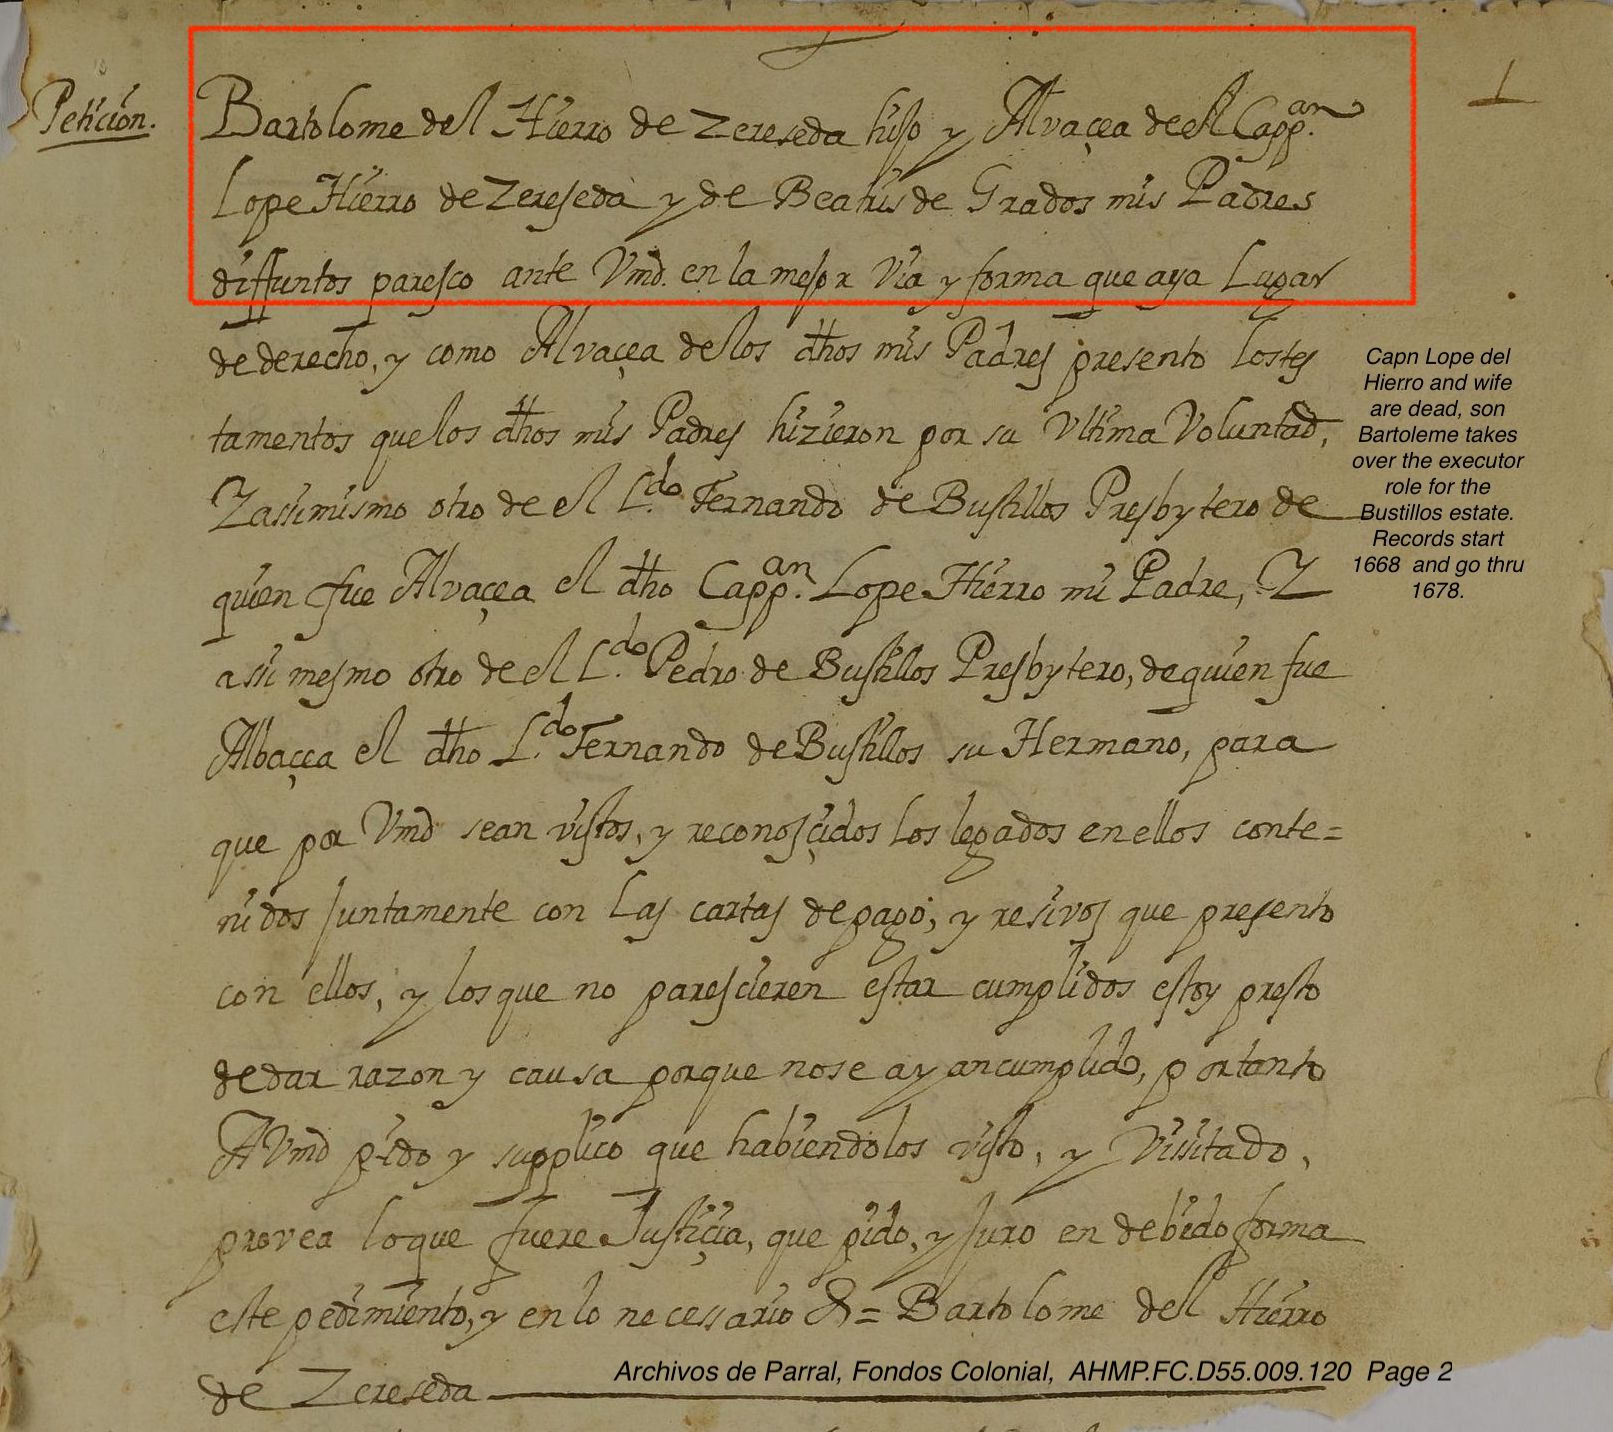 Petición.
1
Bartolome del Hierro de Zereseda hijo y Alvaçea de el Capp.an
Lope Hierro de Zereseda y de Beatris de Grados mis Padres
diffuntos paresco ante Vmd. en la mejor via y forma que aya Lugar
de derecho, y como Alvaçea de los dhos mis Padres presento los tes
tamentos que los dhos mis Padres hizieron por su Vltima Voluntad,
Y assimismo otro de el L.do Fernando de Bustillos Presbytero de
quien fue Alvaçea el dho Capp.an Lope Hierro mi Padre, Y
assi mesmo otro de el L.do Pedro de Bustillos Presbytero, de quien fue
Albaçea el dho L.do Fernando de Bustillos su Hermano, para
que por Vmd sean vistos, y reconosçidos los legados en ellos conte=
nidos juntamente con las cartas de pago, y resivos que presento
con ellos, y los que no parescieren estar cumplidos estoy presto
de dar razon y causa porque no se ayan cumplido, por tanto
A Vmd pido y supplico que habiendolos visto, y Vissitado,
provea lo que fuere Justiçia, que pido, y Juro en debido forma
este pedimiento, y en lo necessario &= Bartolome del Hierro
de Zereseda
Capn Lope del
Hierro and wife
are dead, son
Bartoleme takes
over the executor
role for the
Bustillos estate.
Records start
1668 and go thru
1678.
Archivos de Parral, Fondos Colonial, AHMP.FC.D55.009.120 Page 2